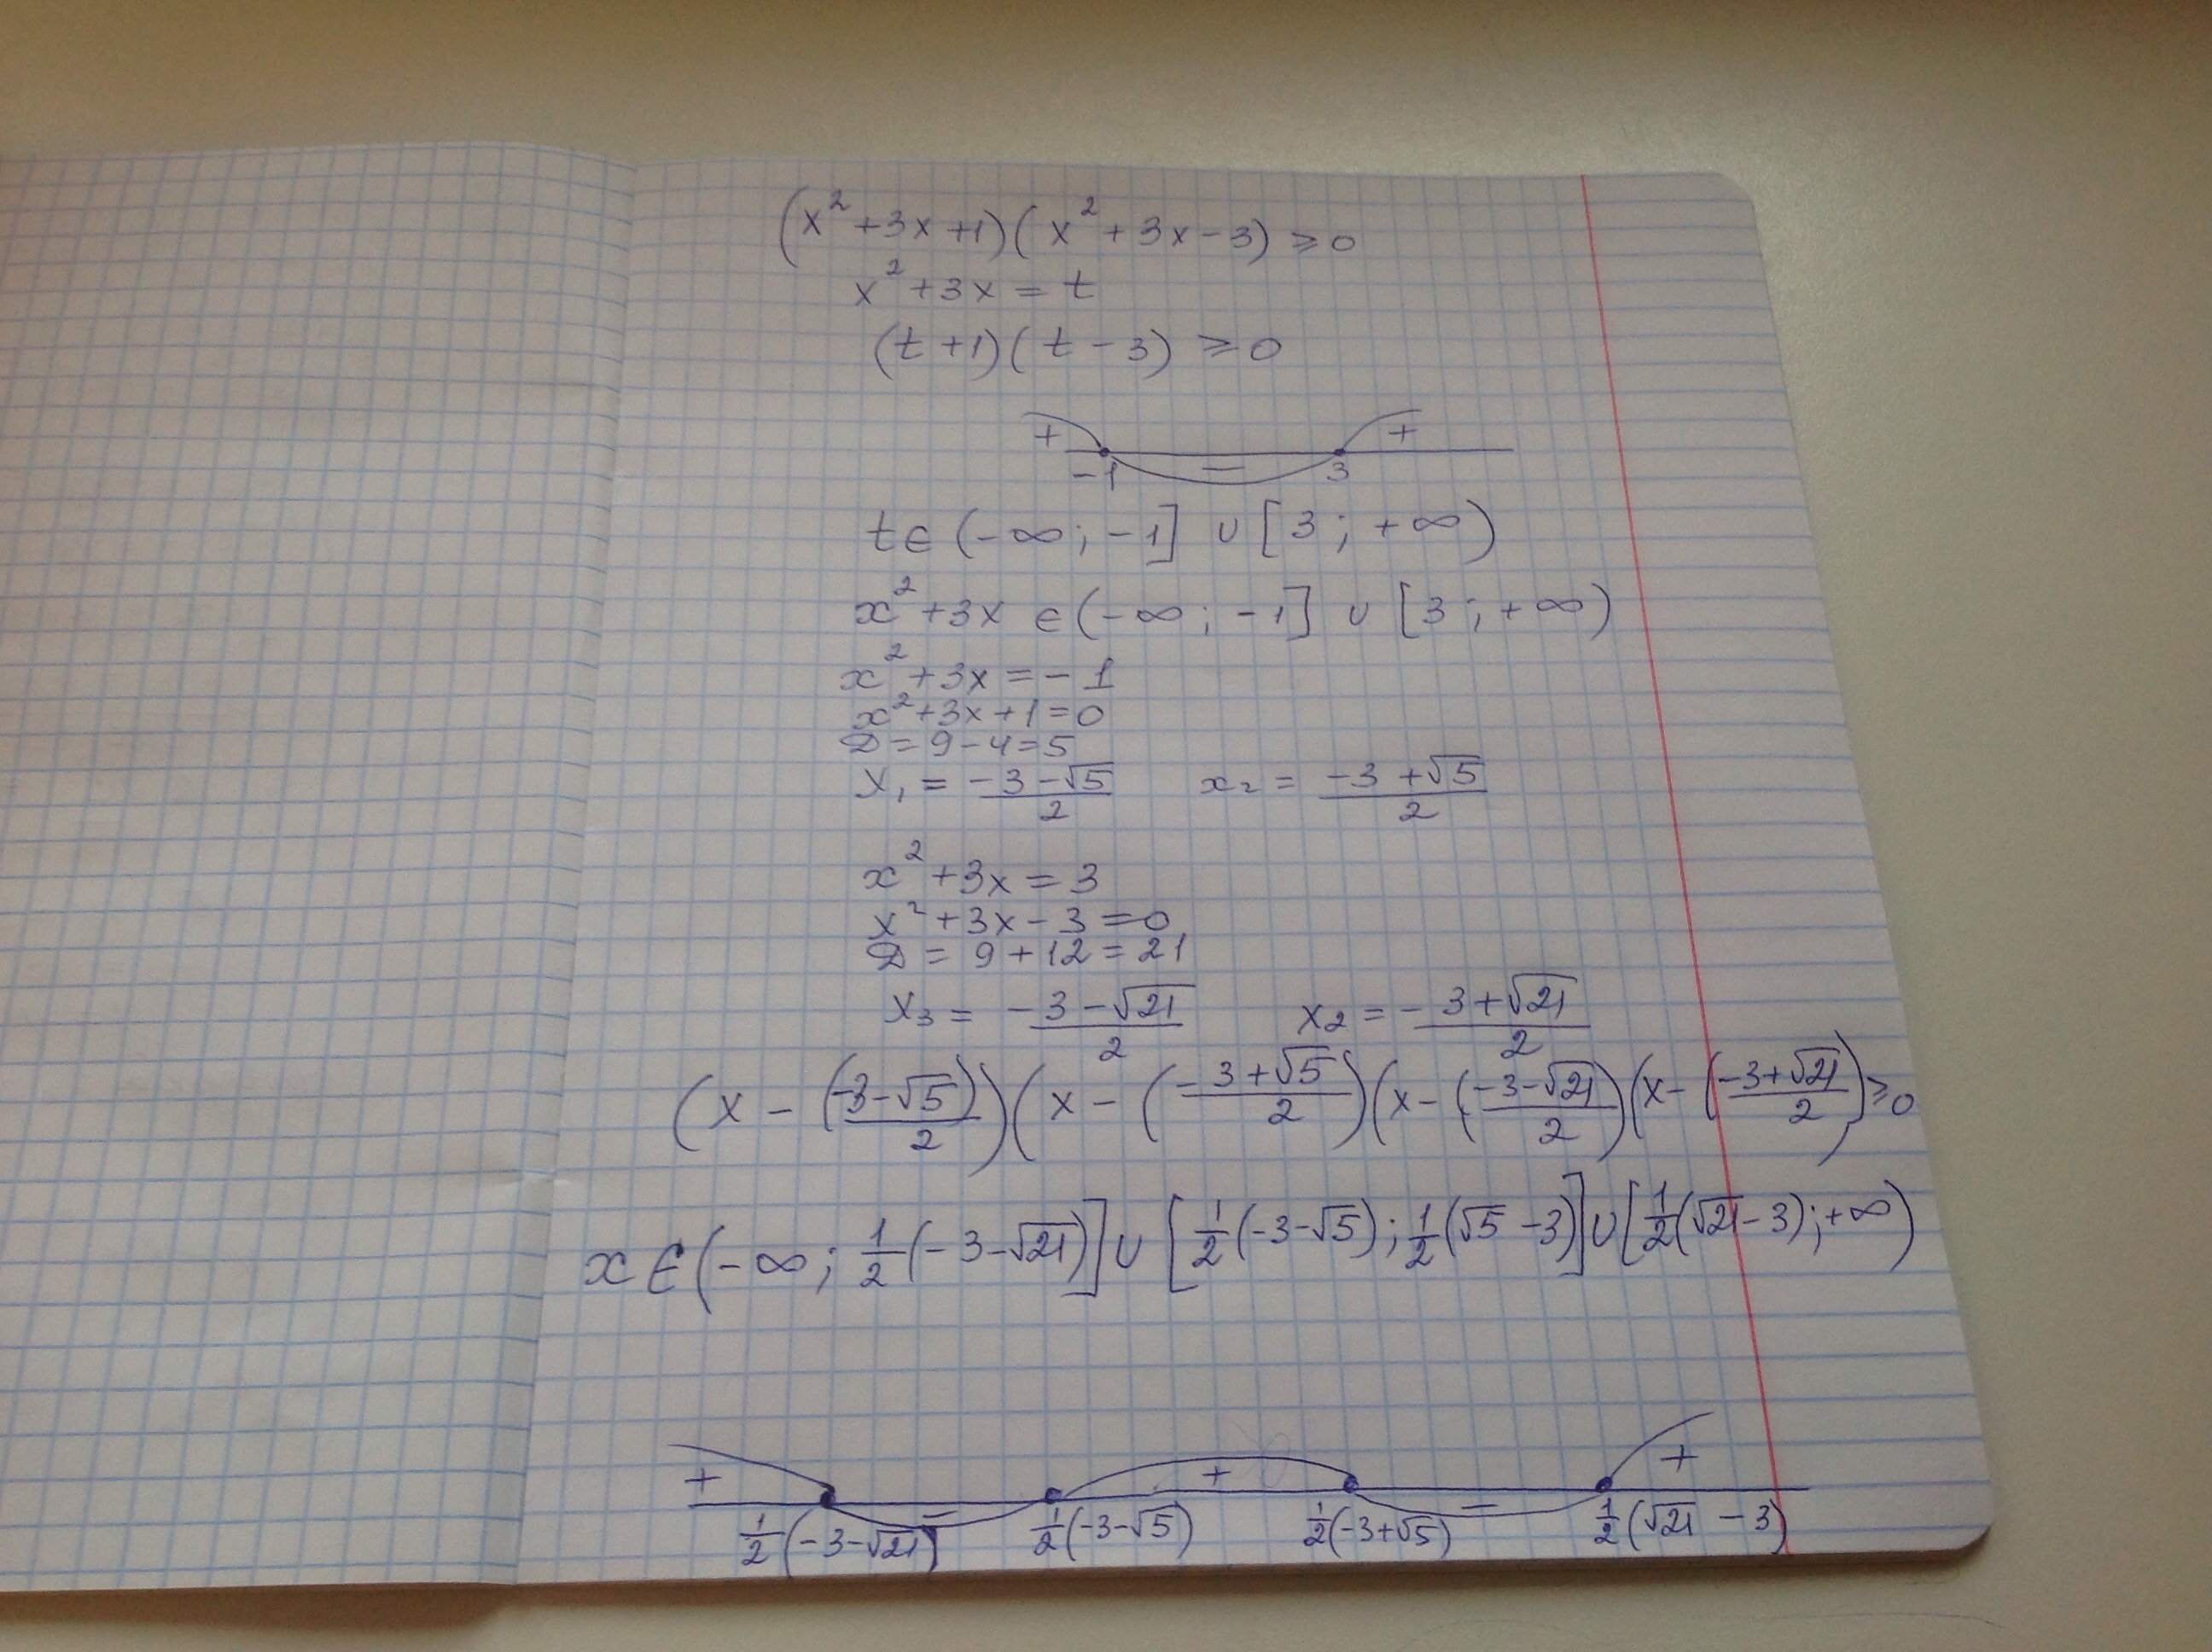 (x² + 3x + 1)(x² + 3x - 3) ⩾ 0
x² + 3x = t
(t + 1)(t - 3) ⩾ 0
+ - +
-1 3
t ∈ (-∞; -1] ∪ [3; +∞)
x² + 3x ∈ (-∞; -1] ∪ [3; +∞)
x² + 3x = -1
x² + 3x + 1 = 0
D = 9 - 4 = 5
x₁ = (-3 - √5)/2 x₂ = (-3 + √5)/2
x² + 3x = 3
x² + 3x - 3 = 0
D = 9 + 12 = 21
x₃ = (-3 - √21)/2 x₂ = (-3 + √21)/2
(x - (-3 - √5)/2)(x - (-3 + √5)/2)(x - (-3 - √21)/2)(x - (-3 + √21)/2) ⩾ 0
x ∈ (-∞; 1/2(-3 - √21)] ∪ [1/2(-3 - √5); 1/2(√5 - 3)] ∪ [1/2(√21 - 3); +∞)
+ - + - +
1/2(-3 - √21) 1/2(-3 - √5) 1/2(-3 + √5) 1/2(√21 - 3)